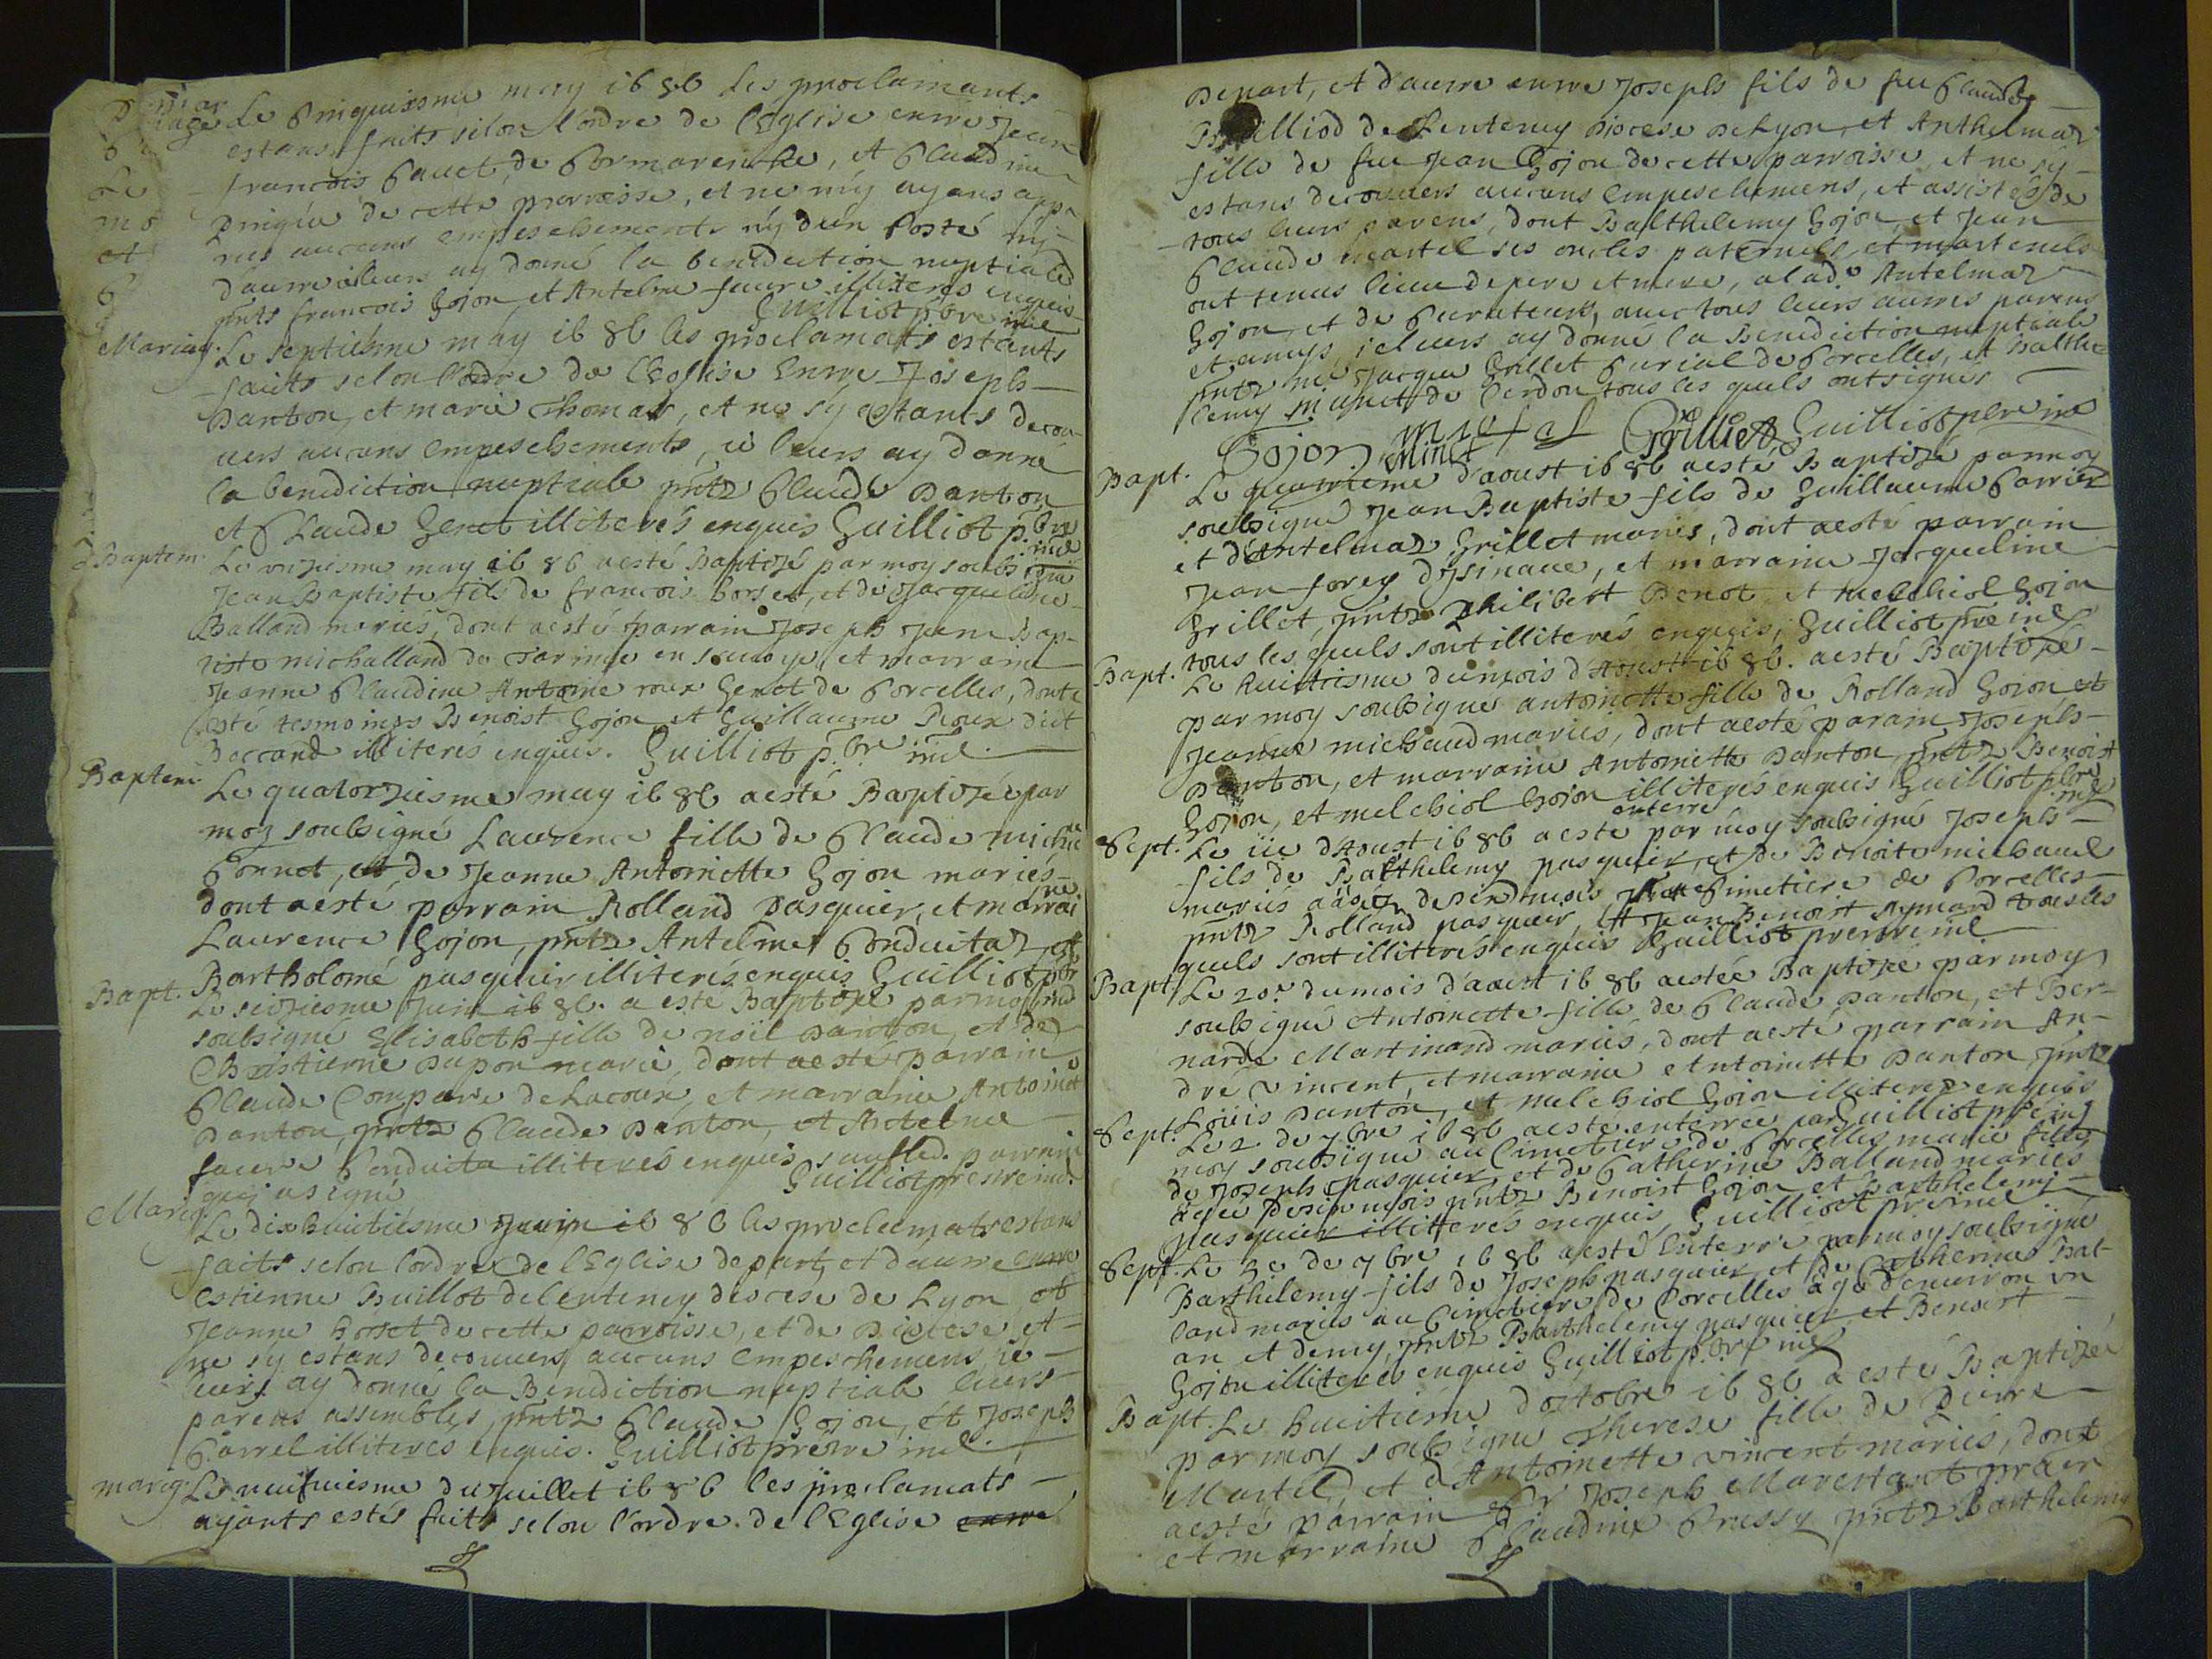 Mariage Le Cinquiesme may 1686 Les proclamants
estans faits selon l'ordre de l'Eglise entre Jean
francois Cauet de Cormaranche, et Claudine
de cette parroisse, et ne m'y ayans appa
rus aucuns empeschements ny d'un Costé ny
d'autre ailleurs ay donné la benediction nuptiale
pnts francois Gojon et Antelme faure illiterés enquis
Guilliot pbre ind
Mariag. Le septiesme may 1686 les proclamats estants
faits selon l'ordre de l'Eglise Entre Joseph
Danton, et marie Thomas, et ne sy estants decou
uers aucuns Empeschements, ie leurs ay donné
la benediction nuptiale pntz Claude Danton
et Claude Genet illiterés enquis Guilliot pbre
ind
Baptem. Le unziesme may 1686 aesté Baptizé par moy soubsigné
Jean Baptiste fils de francois borset, et de Jacqueline
Balland mariés, dont aesté parrain Joseph Jean Bap-
tiste michalland de en sauoye, et marraine
Jeanne Claudine Antoine roux Genet de Corcelles, dont
esté tesmoings Benoist Gojon et Guillaume Roux dict
illiterés enquis. Guilliot pbre ind.
Baptem. Le quatorziesme may 1686 aesté Baptizée par
moy soubsigné Laurence fille de Claude
Connet, et de Jeanne Antoinette Gojon mariés
dont aesté parrain Rolland Pasquier, et marrai
ne
Laurence Gojon, pntz Antelme Conduitaz et
Bartholomé pasquier illiterés enquis Guilliot pbr
Bapt. Le seiziesme Juin 1686. a esté Baptizé par moy ind
soubsigné Elisabeth fille de noël Danton, et de
Christienne Dupon marié, dont aesté parrain
Claude Compare de Lacoux, et marraine Antoinet
Danton, pntz Claude Danton, et Antelme
faure Conduita illiterés enquis sauf led. parrain
qui a signé Guilliot prestre ind.
Mariag. Le dixhuitiesme Juin 1686 les proclamats estans
faits selon l'ordre de l'Eglise de part, et d'autre entre
estienne Buillot de lentenay diocese de Lyon et
Jeanne borset de cette parroisse, et de Diocese et
ne s'y estans decouuers aucuns Empeschemens, ie
leurs ay donné la Benediction nuptiale leurs
parens assemblés, pntz Claude Gojon, et Joseph
Carrel illiterés enquis. Guilliot prestre ind.
mariag. Le neufuiesme du Juillet 1686 les proclamats
ayants estés faits selon l'ordre de l'Eglise entre
Depart, et d'autre entre Joseph fils de feu Claude
Builliod de Lentenay Diocese de Lyon, et Anthelmaz
fille de feu Jean Gojon de cette parroisse, et ne s'y
estans decouuers aucuns Empeschemens, et assistés de
tous leurs parens, dont Balthelemy Gojon, et Jean
Claude martel ses oncles paternels, et maternels
ont tenus lieu de pere et mere, a lade Antelmaz
Gojon, et de Curateurs, auec tous leurs autres parens
et amys, ie leurs ay donné la Benediction nuptiale
pntz me Jacque Grillet Curial de Corcelles, et Balthe
lemy minet de Cerdon tous les quels ont signés
Gojon martel Grilliet Guilliot pbre ind
Minet
Bapt. Le quatrieme d'aoust 1686 aesté Baptizé par moy
soubsigné Jean Baptiste fils de Guillaume Carrier
et d'Antelmaz Grillet mariés, dont aesté parrain
Jean forey d'Isinaue, et marraine Jacqueline
Grillet, pntz Philibert Benot, et melchiol Gojon
tous les quels sont illiterés enquis, Guilliot pre ind
Bapt. Le huitiesme du mois d'Aoust 1686. aesté Baptizé
par moy soubsigné antoinette fille de Rolland Gojon et
Jeanne michaud mariés, dont aesté parain Joseph
Danton, et marraine Antoinette Danton, pntz Benoist
Gojon, et melchiol Gojon illiterés enquis Guilliot pbre
ind
Sept. Le iie d'Aoust 1686 aesté enterré par moy soubsigné Joseph
fils de Balthelemy pasquier, et de Benoite michaud
mariés aagé de six mois au Cimetiere de Corcelles
pntz Rolland pasquier, et Jean Benoist Aymard tous les
quels sont illiterés enquis Guilliot prestre ind
Bapt. Le 20e du mois d'aoust 1686 aestée Baptizé par moy
soubsigné Antoinette fille de Claude Danton, et Ber-
narde Martinand mariés, dont aesté parrain An-
dré Vincent, et marraine Antoinette Danton pntz
Loüis Danton, et melchiol Gojon illiterés enquis
Guilliot pre ind
Sept. Le 2 de 7bre 1686 aesté enterrée par
moy soubsigné au Cimetiere de Corcelles marie fille
de Joseph pasquier, et de Catherine Balland mariés
agée de six mois pntz Benoist Gojon et Barthelemi
pasquier illitterés enquis Guilliot prestre
Sept. Le 3e de 7bre 1686 aesté Enterré par moy soubsigné
Barthelemy fils de Joseph pasquier et de Catherine Bal-
land mariés au Cimetiere de Corcelles agé d'enuiron un
an et demy, pntz Barthelemy pasquier et Benoist
Gojon illiterés enquis Guilliot pbre ind
Bapt. Le huitieme d'octobre 1686 aesté Baptizé
par moy soubsigné Therese fille de Pierre
Martel, et d'Antoinette vincent mariés, dont
aesté parrain Sr Joseph Marestant
et marraine Claudine Crussy pntz Barthelemy